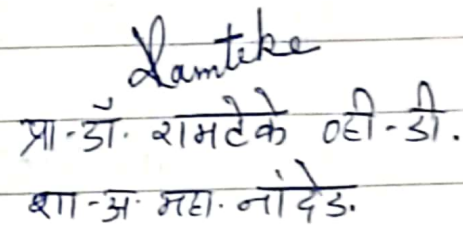 Ramteke
प्रा-डॉ. रामटेके व्ही-डी.
शा-अ. महा. नांदेड.